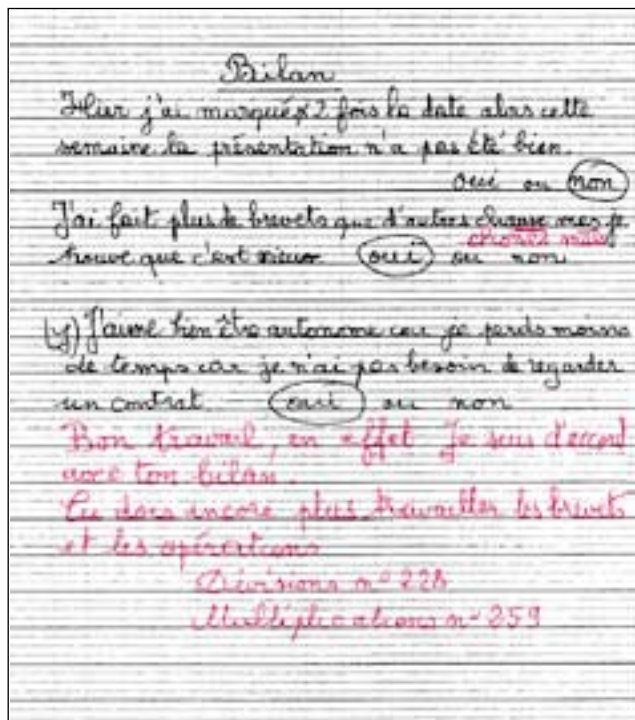 Bilan
Hier j'ai marqué 2 fois la date alors cette
semaine la présentation n'a pas été bien.
oui ou non
J'ai fait plus de brevets que d'autres mes je
choses mais
trouve que c'est mieux oui ou non
J'aime bien être autonome car je perds moins
de temps car je n'ai pas besoin de regarder
un contrat. oui ou non
Bon travail, en effet Je suis d'accord
avec ton bilan.
Tu dois encore plus travailler les brevets
et les opérations
Divisions n° 228
Multiplications n° 259